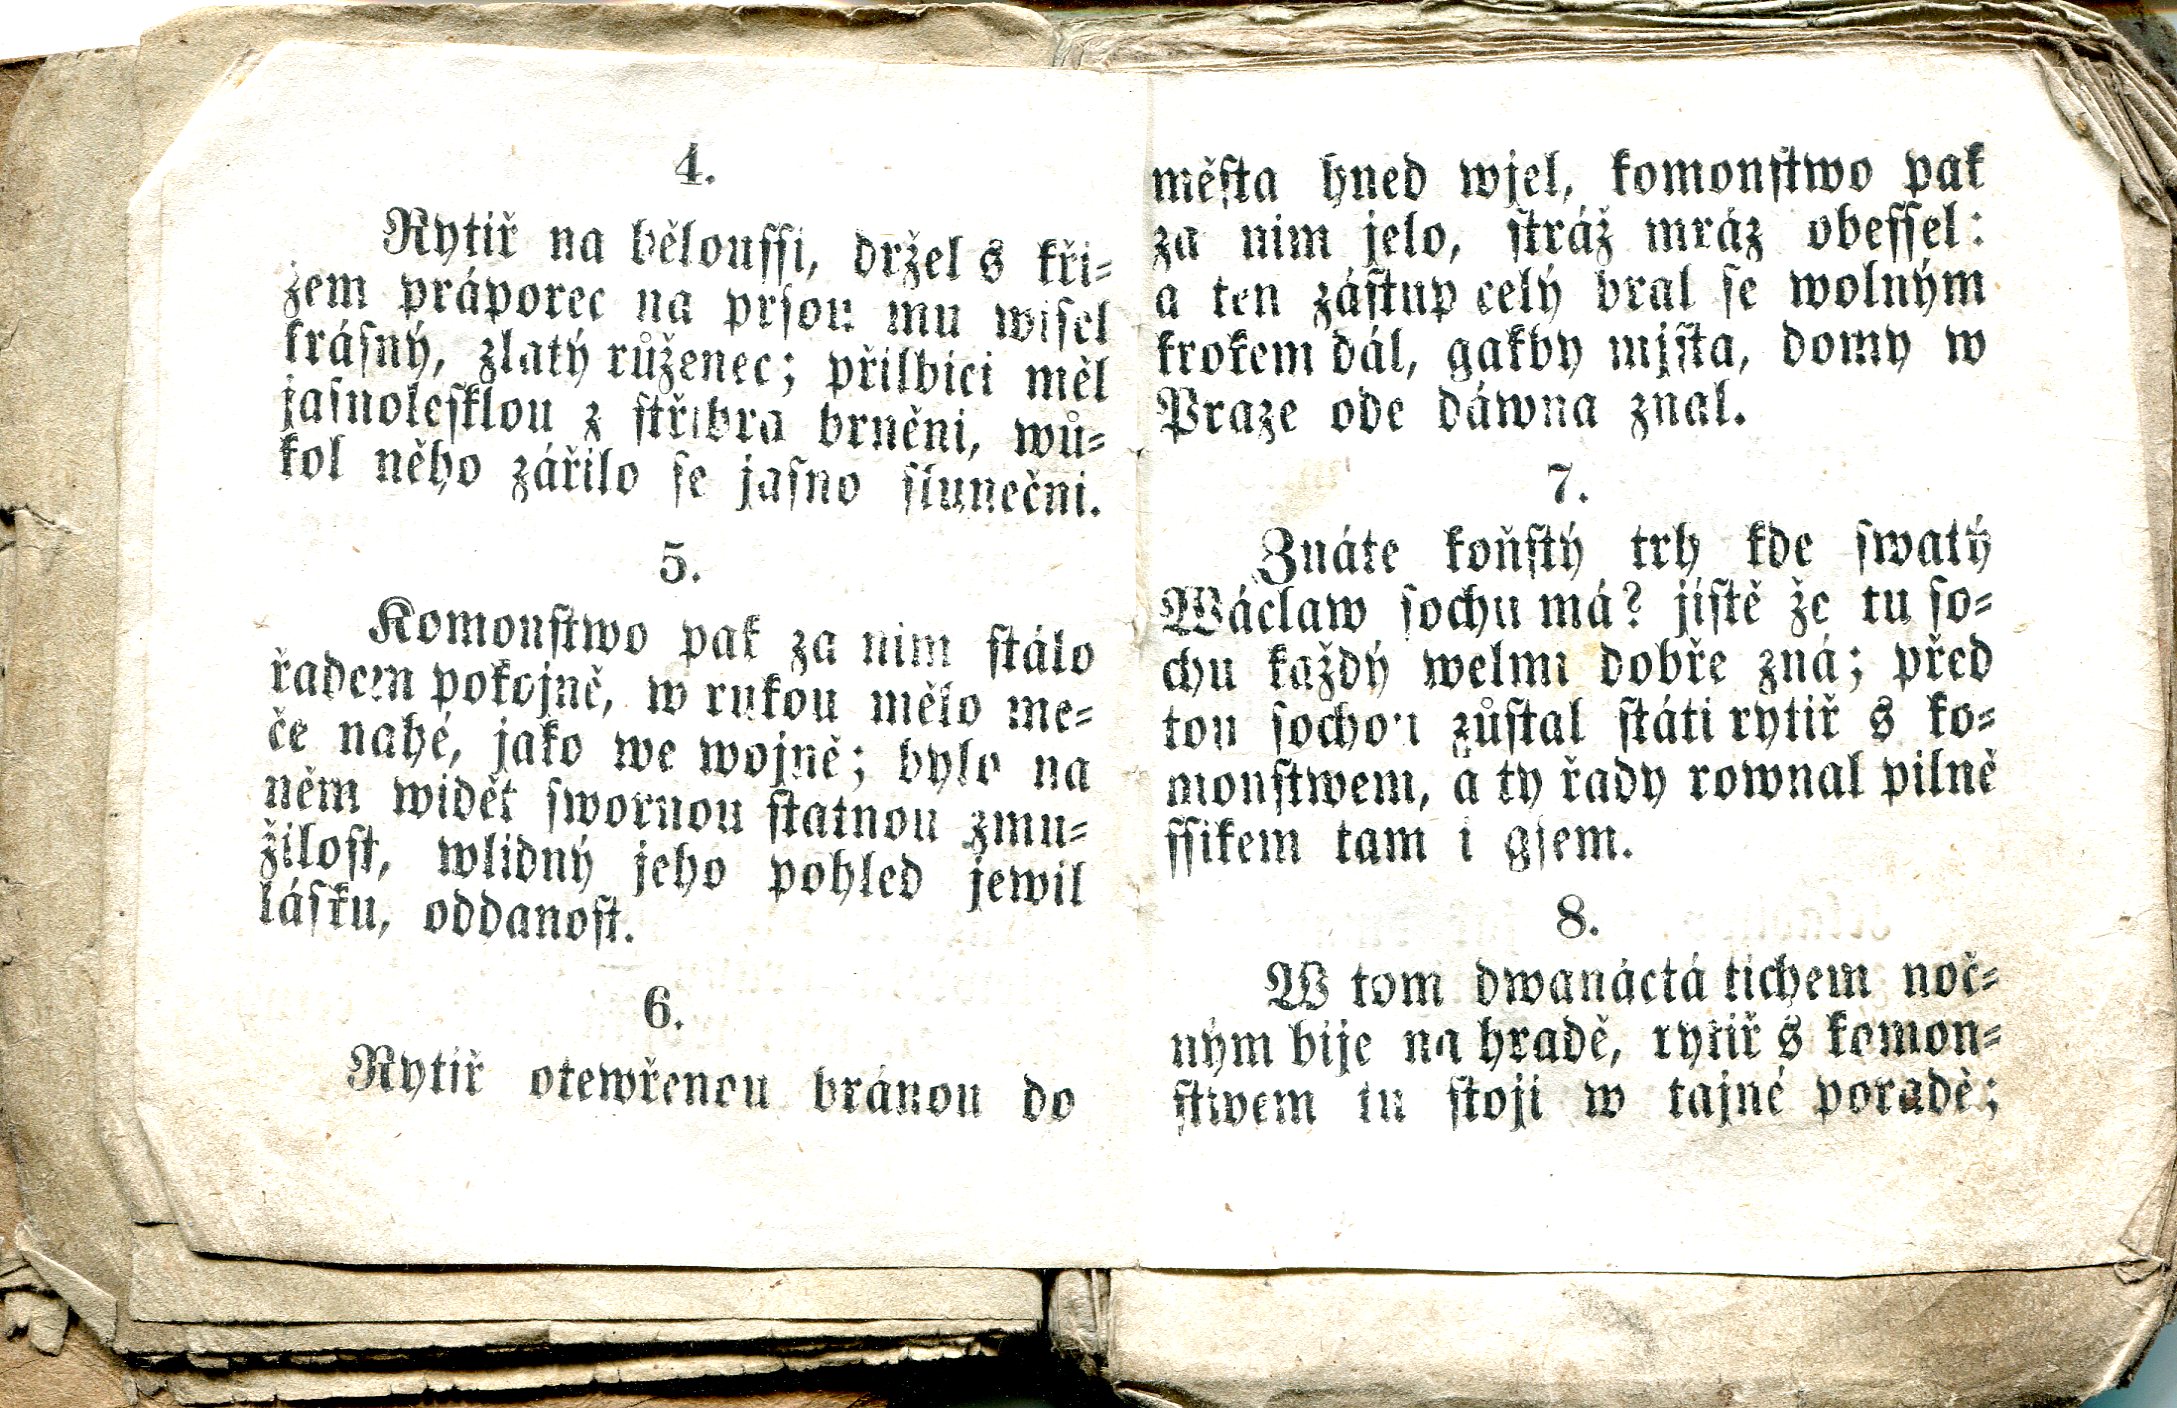 4.
Rytiř na běloussi, držel s kři=
žem práporec na prsou mu wisel
krásný, zlatý růženec; přilbici měl
jasnolesklou z střibra brněni, wů=
kol něho zářilo se jasno slunečni.
5.
Komonstwo pak za nim stálo
řadem pokojně, w rukou mělo me=
če nahé, jako we wojně; bylo na
něm widět swornou statnou zmu=
žilost, wlidný jeho pohled jewil
lásku, oddanost.
6.
Rytiř otewřenou bránou do
města hned wjel, komonstwo pak
za nim jelo, stráž mráz obessel:
a ten zástup celý bral se wolným
krokem dál, gakby mjsta, domy w
Praze ode dáwna znal.
7.
Znáte koňský trh kde swatý
Wáclaw sochu má? jistě že tu so=
chu každý welmi dobře zná; před
tou sochou zůstal státi rytiř s ko=
monstwem, a ty řady rownal pilně
ssikem tam i gjem.
8.
W tom dwanáctá tichem noč=
ným bije na hradě, rytiř s komon=
stwem tu stoji w tajné poradě;